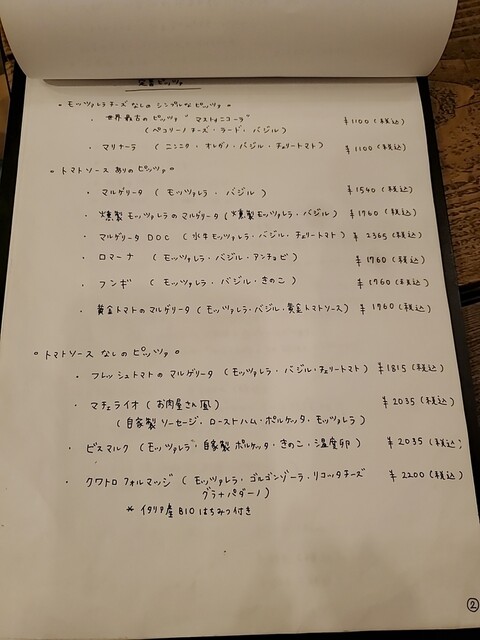 定番ピッツァ
○ モッツァレラチーズなしのシンプルなピッツァ ○
・世界最古のピッツァ "マストゥニコーラ" ¥1100(税込)
(ペコリーノチーズ・ラード・バジル)
・マリナーラ (ニンニク・オレガノ・バジル・チェリートマト) ¥1100(税込)
○ トマトソースありのピッツァ ○
・マルゲリータ (モッツァレラ・バジル) ¥1540(税込)
・燻製モッツァレラのマルゲリータ (燻製モッツァレラ・バジル) ¥1760(税込)
・マルゲリータDOC (水牛モッツァレラ・バジル・チェリートマト) ¥2365(税込)
・ロマーナ (モッツァレラ・バジル・アンチョビ) ¥1760(税込)
・フンギ (モッツァレラ・バジル・きのこ) ¥1760(税込)
・黄金トマトのマルゲリータ (モッツァレラ・バジル・黄金トマトソース) ¥1760(税込)
○ トマトソースなしのピッツァ ○
・フレッシュトマトのマルゲリータ (モッツァレラ・バジル・チェリートマト) ¥1815(税込)
・マチェライオ (お肉屋さん風) ¥2035(税込)
(自家製ソーセージ・ローストハム・ポルケッタ・モッツァレラ)
・ビスマルク (モッツァレラ・自家製ポルケッタ・きのこ・温度卵) ¥2035(税込)
・クワトロフォルマッジ (モッツァレラ・ゴルゴンゾーラ・リコッタチーズ ¥2200(税込)
グラナパダーノ)
* イタリア産BIOはちみつ付き
②